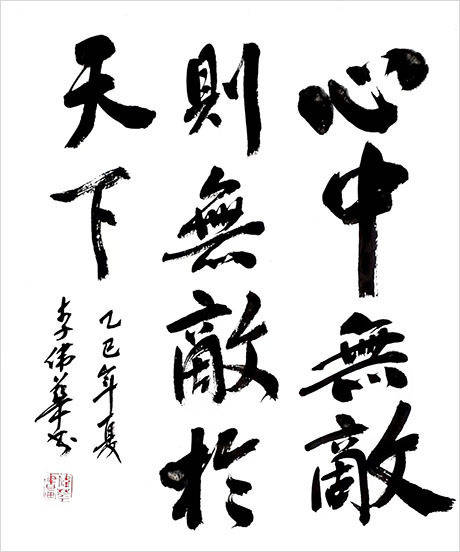 心中無敵
則無敵於
天下
乙巳年夏
李偉華書